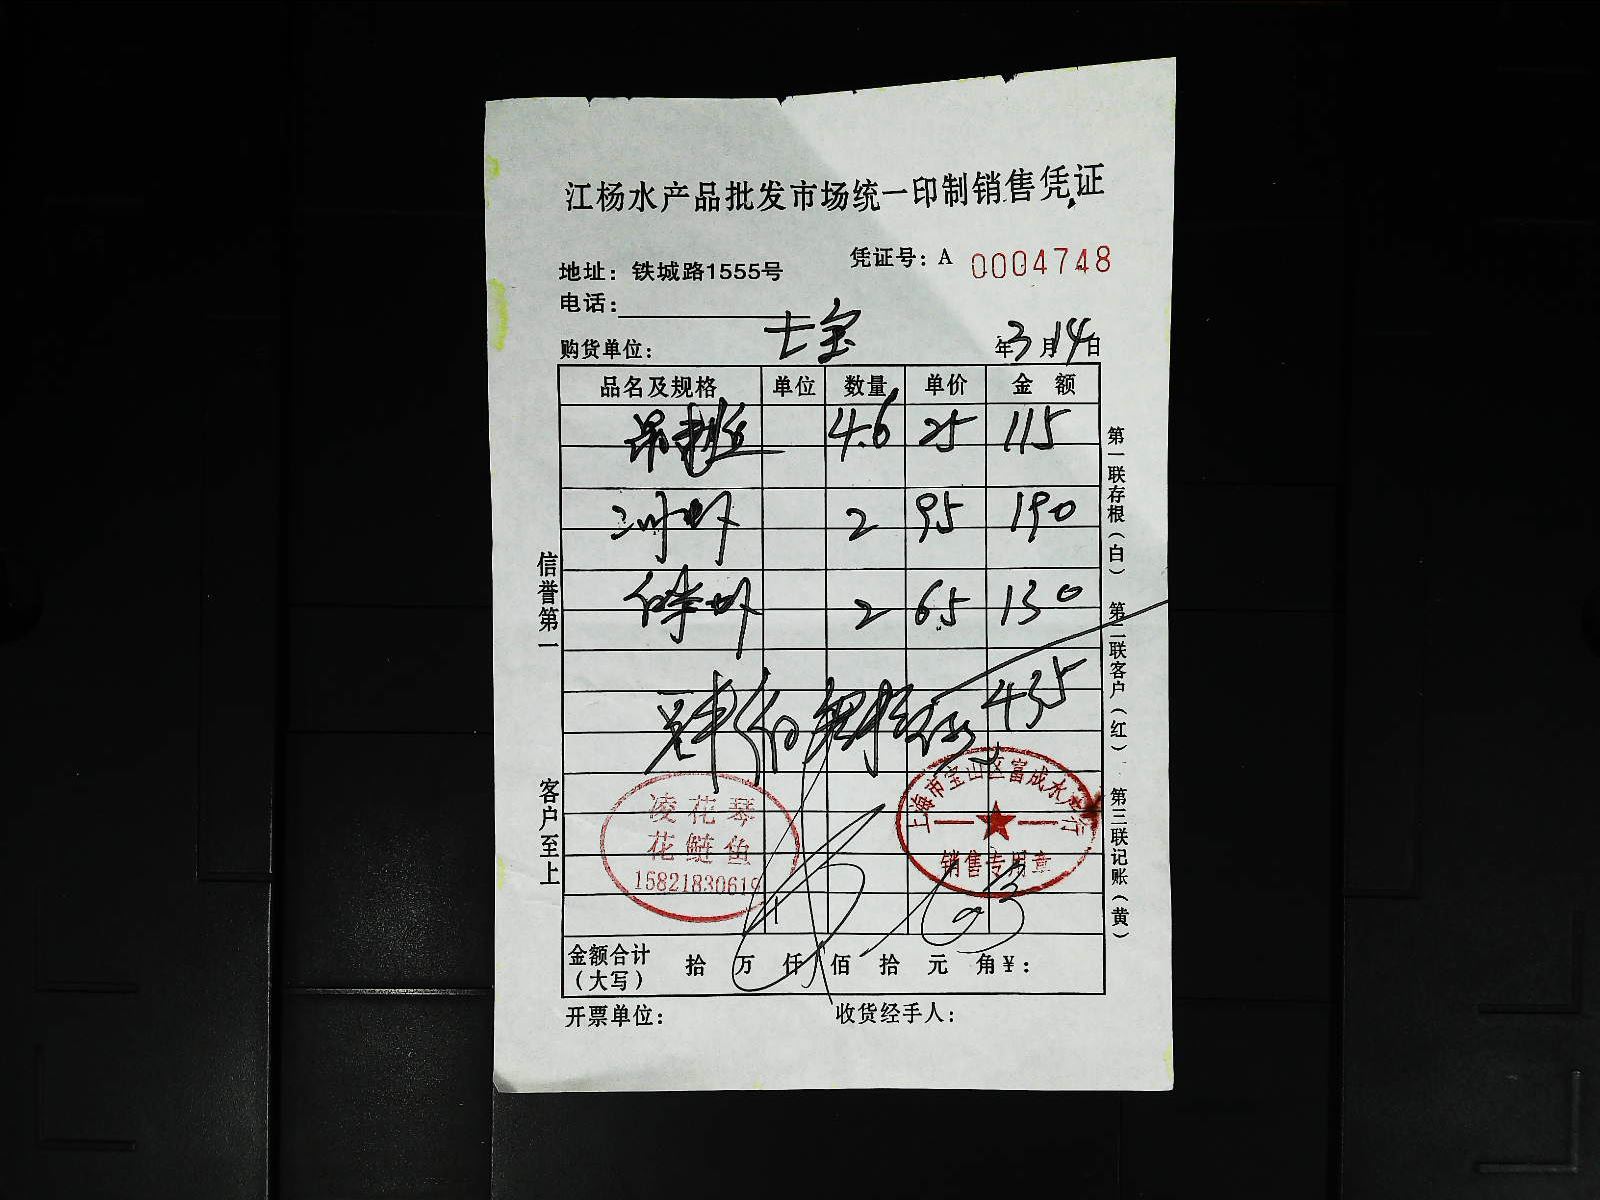 江杨水产品批发市场统一印制销售凭证
凭证号：A 0004748
地址：铁城路1555号
电话：
购货单位： 七宝 年3月14日
品名及规格 单位 数量 单价 金 额
4.6 25 115
河虾 2 95 190
白米虾 2 65 130
435
凌花琴
花鲢鱼
15821830619
上海市宝山区富成水产行
销售专用章
金额合计
（大写） 拾 万 仟 佰 拾 元 角 ¥：
开票单位： 收货经手人：
信誉第一
客户至上
第一联存根（白） 第二联客户（红） 第三联记账（黄）